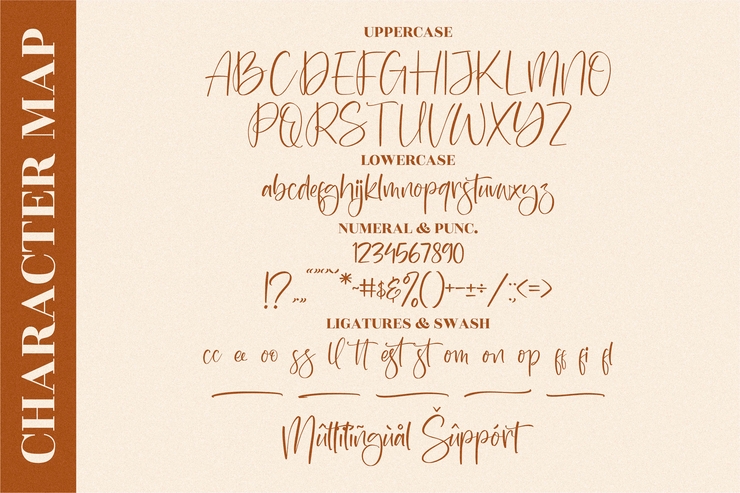 CHARACTER MAP
UPPERCASE
ABCDEFGHIJKLMNO
PQRSTUVWXYZ
LOWERCASE
abcdefghijklmnopqrstuvwxyz
NUMERAL & PUNC.
1234567890
!?,,"""''*~#$&%()+−±÷/:;<=>
LIGATURES & SWASH
cc ee oo ss ll tt est st om on op ff fi fl
Mûltïlïñgùål Šûppórt